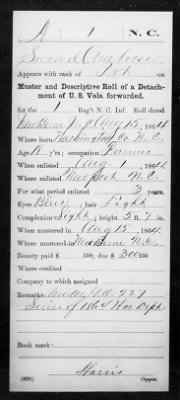 A 1 N.C.
Appears with rank of Pvt. on
Muster and Descriptive Roll of a Detach-
ment of U. S. Vols. forwarded.
for the 1 Reg't N. C. Inf. Roll dated
New Berne N.C. Aug 15, 1864
Where born Washington Co N.C.
Age 18 y'rs; occupation Farmer
When enlisted Aug 1, 1864
Where enlisted Newport N.C.
For what period enlisted 3 years.
Eyes Blue; hair Light
Complexion Light; height 5 ft. 7 in.
When mustered in Aug 15, 1864
Where mustered in New Berne N.C.
Bounty paid $ 100; due $ 300 100
Where credited
Company to which assigned
Remarks: Under G.O. 227
Series of 1864 War Dept
Book mark:
Harris
Copyist.